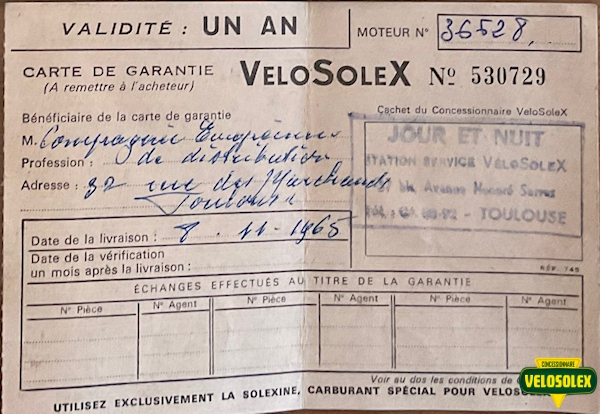 VALIDITÉ : UN AN
MOTEUR N° 36528
CARTE DE GARANTIE
(A remettre à l'acheteur)
VELOSOLEX N° 530729
Bénéficiaire de la carte de garantie
Cachet du Concessionnaire VELOSOLEX
M. Compagnie Européenne
Profession : de distribution
Adresse : 32 rue des Marchands
Toulouse
JOUR ET NUIT
STATION SERVICE VÉLOSOLEX
bis Avenue Honoré Serres
TÉL : - TOULOUSE
Date de la livraison : 8 . 11 - 1965
Date de la vérification
un mois après la livraison :
RÉF. 745
ÉCHANGES EFFECTUÉS AU TITRE DE LA GARANTIE
N° Pièce N° Agent N° Pièce N° Agent N° Pièce N° Agent
Voir au dos les conditions de
UTILISEZ EXCLUSIVEMENT LA SOLEXINE, CARBURANT SPÉCIAL POUR VELOSOLEX
CONCESSIONNAIRE
VELOSOLEX